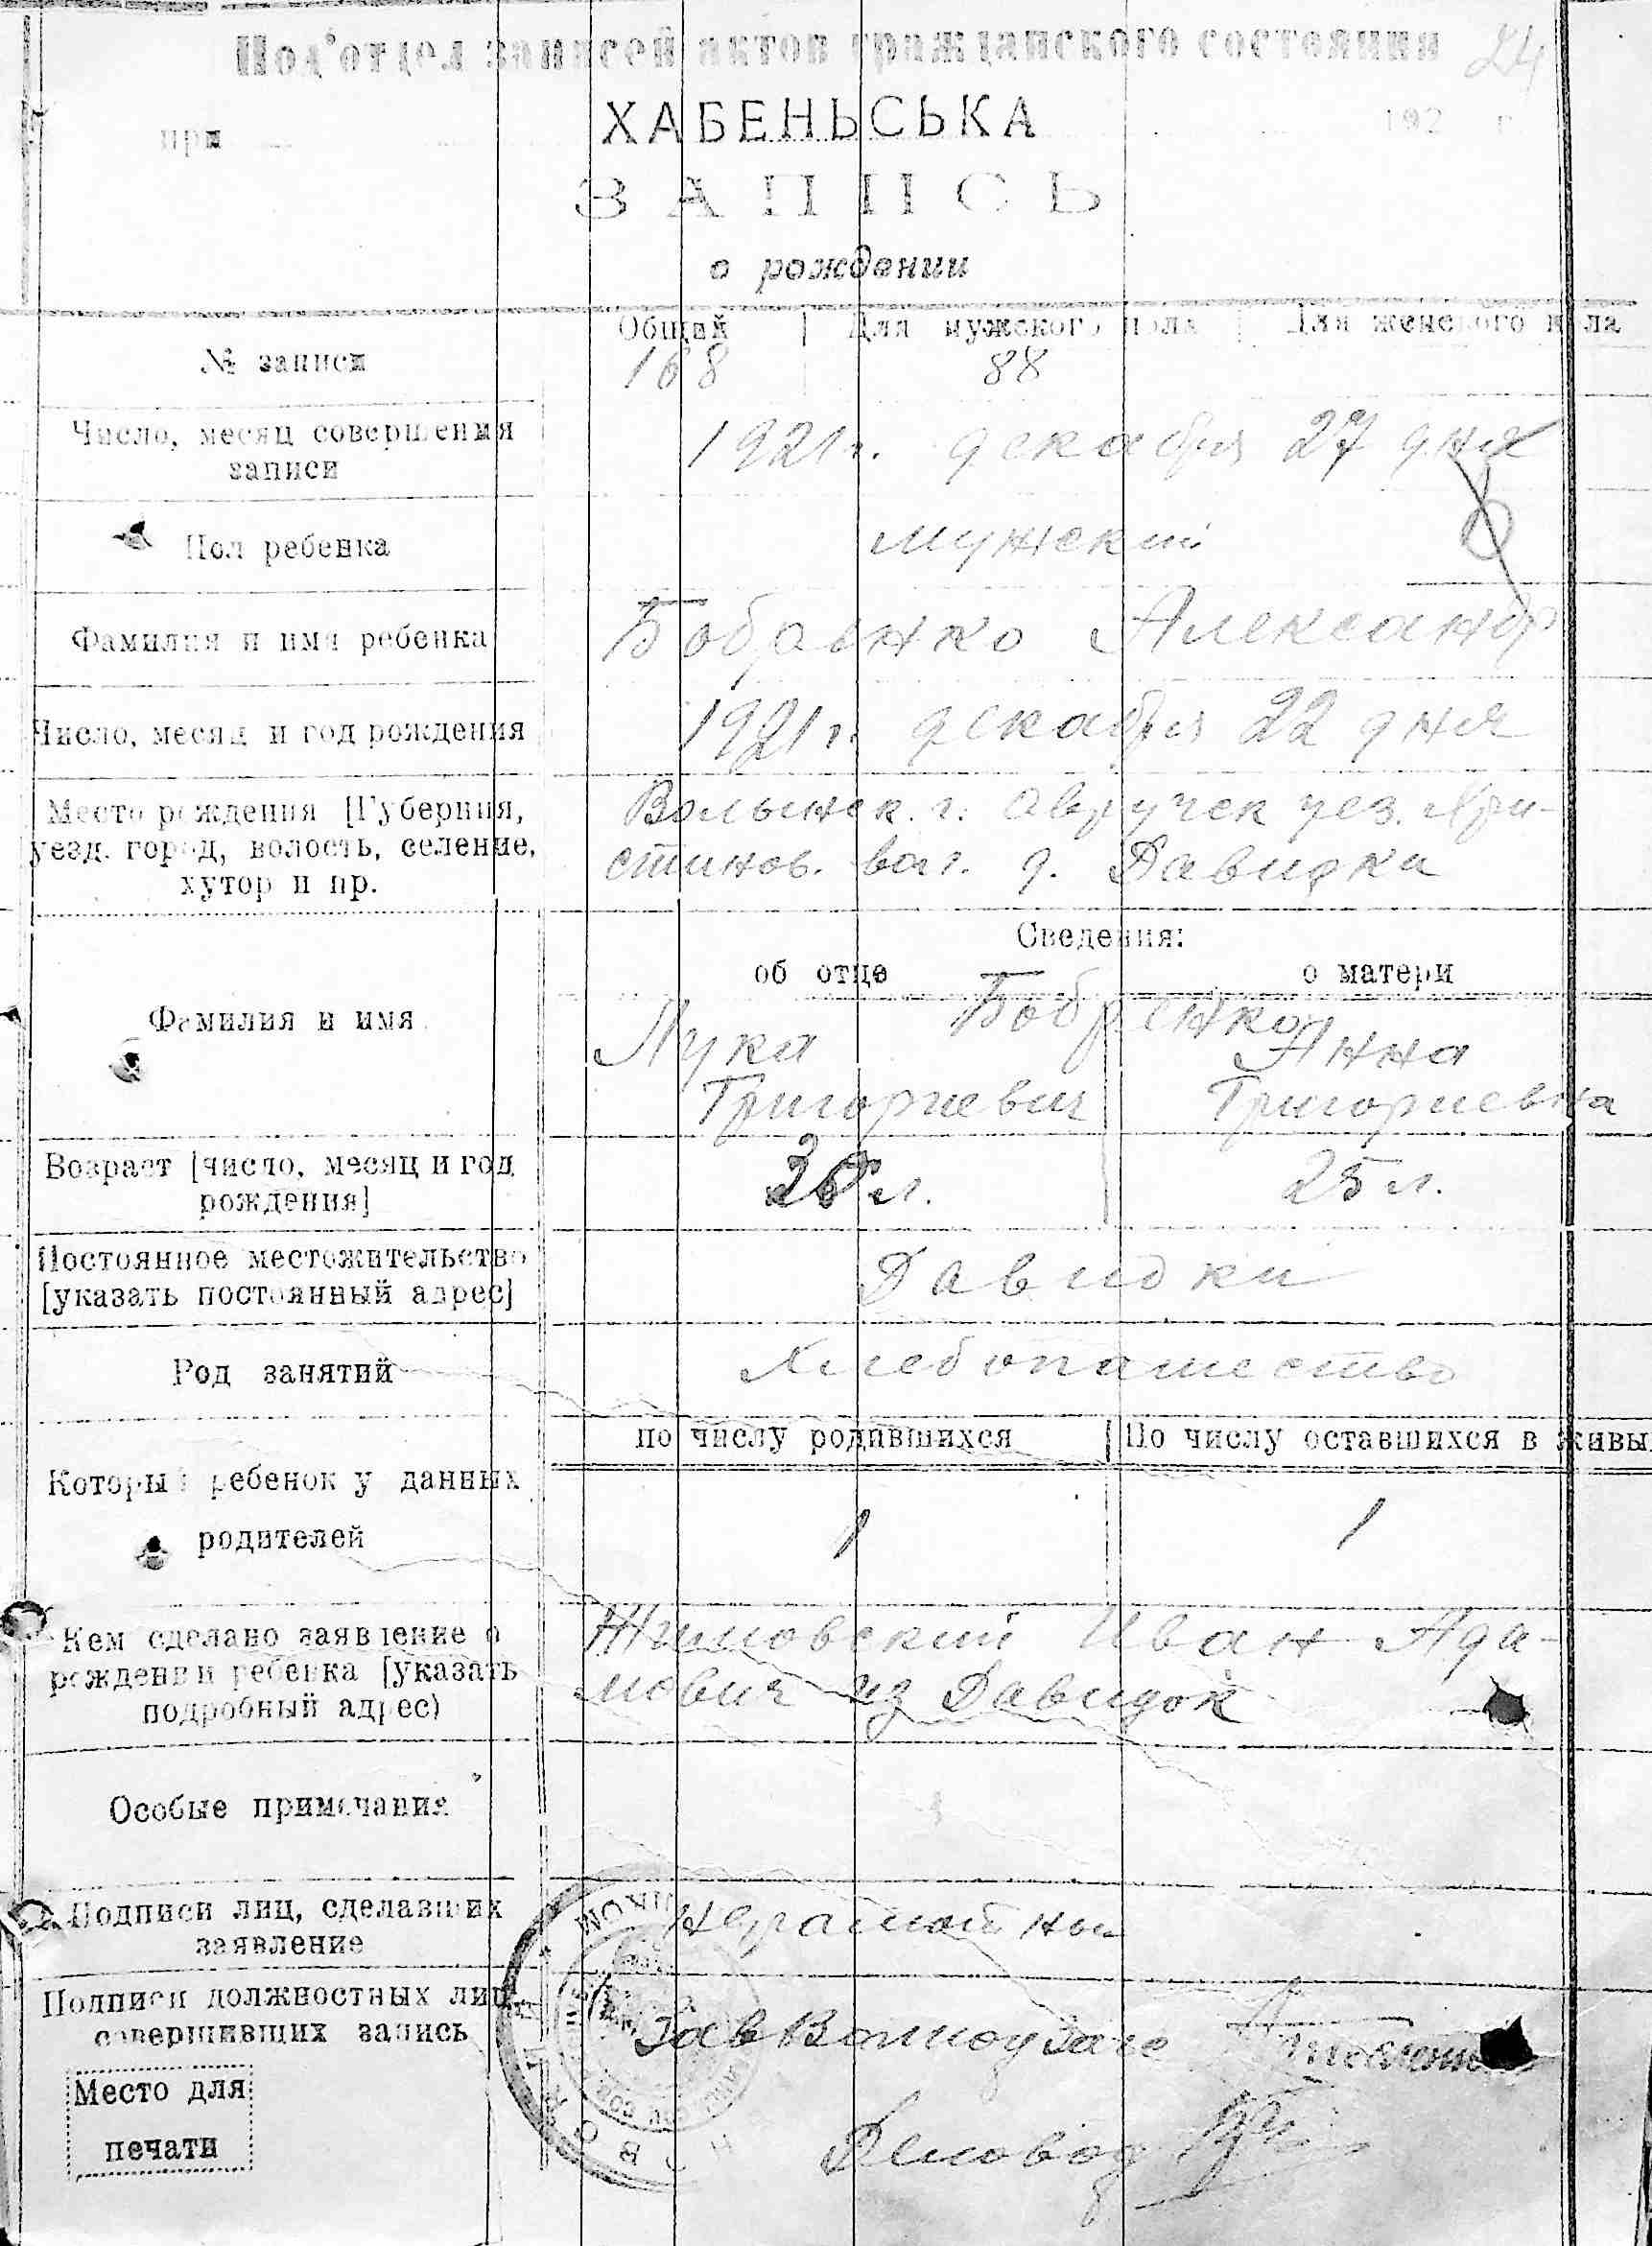 Под'отдел записей актов гражданского состояния 24
при ХАБЕНЬСЬКА 192 г
ЗАПИСЬ
о рождении
Общий Для мужского пола Для женского пола
№ записи 168 88
Число, месяц совершения 1921 г. декабря 27 дня
записи
Пол ребенка мужский
Фамилия и имя ребенка Бобренко Александр
Число, месяц и год рождения 1921 г. декабря 22 дня
Место рождения [Губерния, Волынск. г. Овручск уез. Хри-
уезд. город, волость, селение, стинов. вол. д. Давидки
хутор и пр.
Сведения:
об отце о матери
Фамилия и имя Бобренко
Лука Анна
Григориевич Григориевна
Возраст [число, месяц и год л. 25 л.
рождения]
Постоянное местожительство Давидки
[указать постоянный адрес]
Род занятий Хлебопашество
по числу родившихся По числу оставшихся в живы
Который ребенок у данных 1 1
родителей
Кем сделано заявление о Иван Ада-
рождении ребенка [указать мович из Давидок
подробный адрес)
Особые примечания
Подписи лиц, сделавших неграмотный
заявление
Подписи должностных лиц,
совершивших запись
Место для Деловод
печати